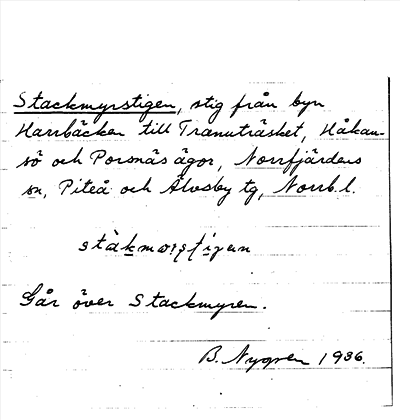 Stackmyrstigen, stig från byn
Harrbäcken till Tranuträsket, Håkan-
sö och Porsnäs ägor, Norrfjärdens
sn, Piteå och Älvsby tg, Norrb. l.
Går över Stackmyren.
B. Nygren 1936.